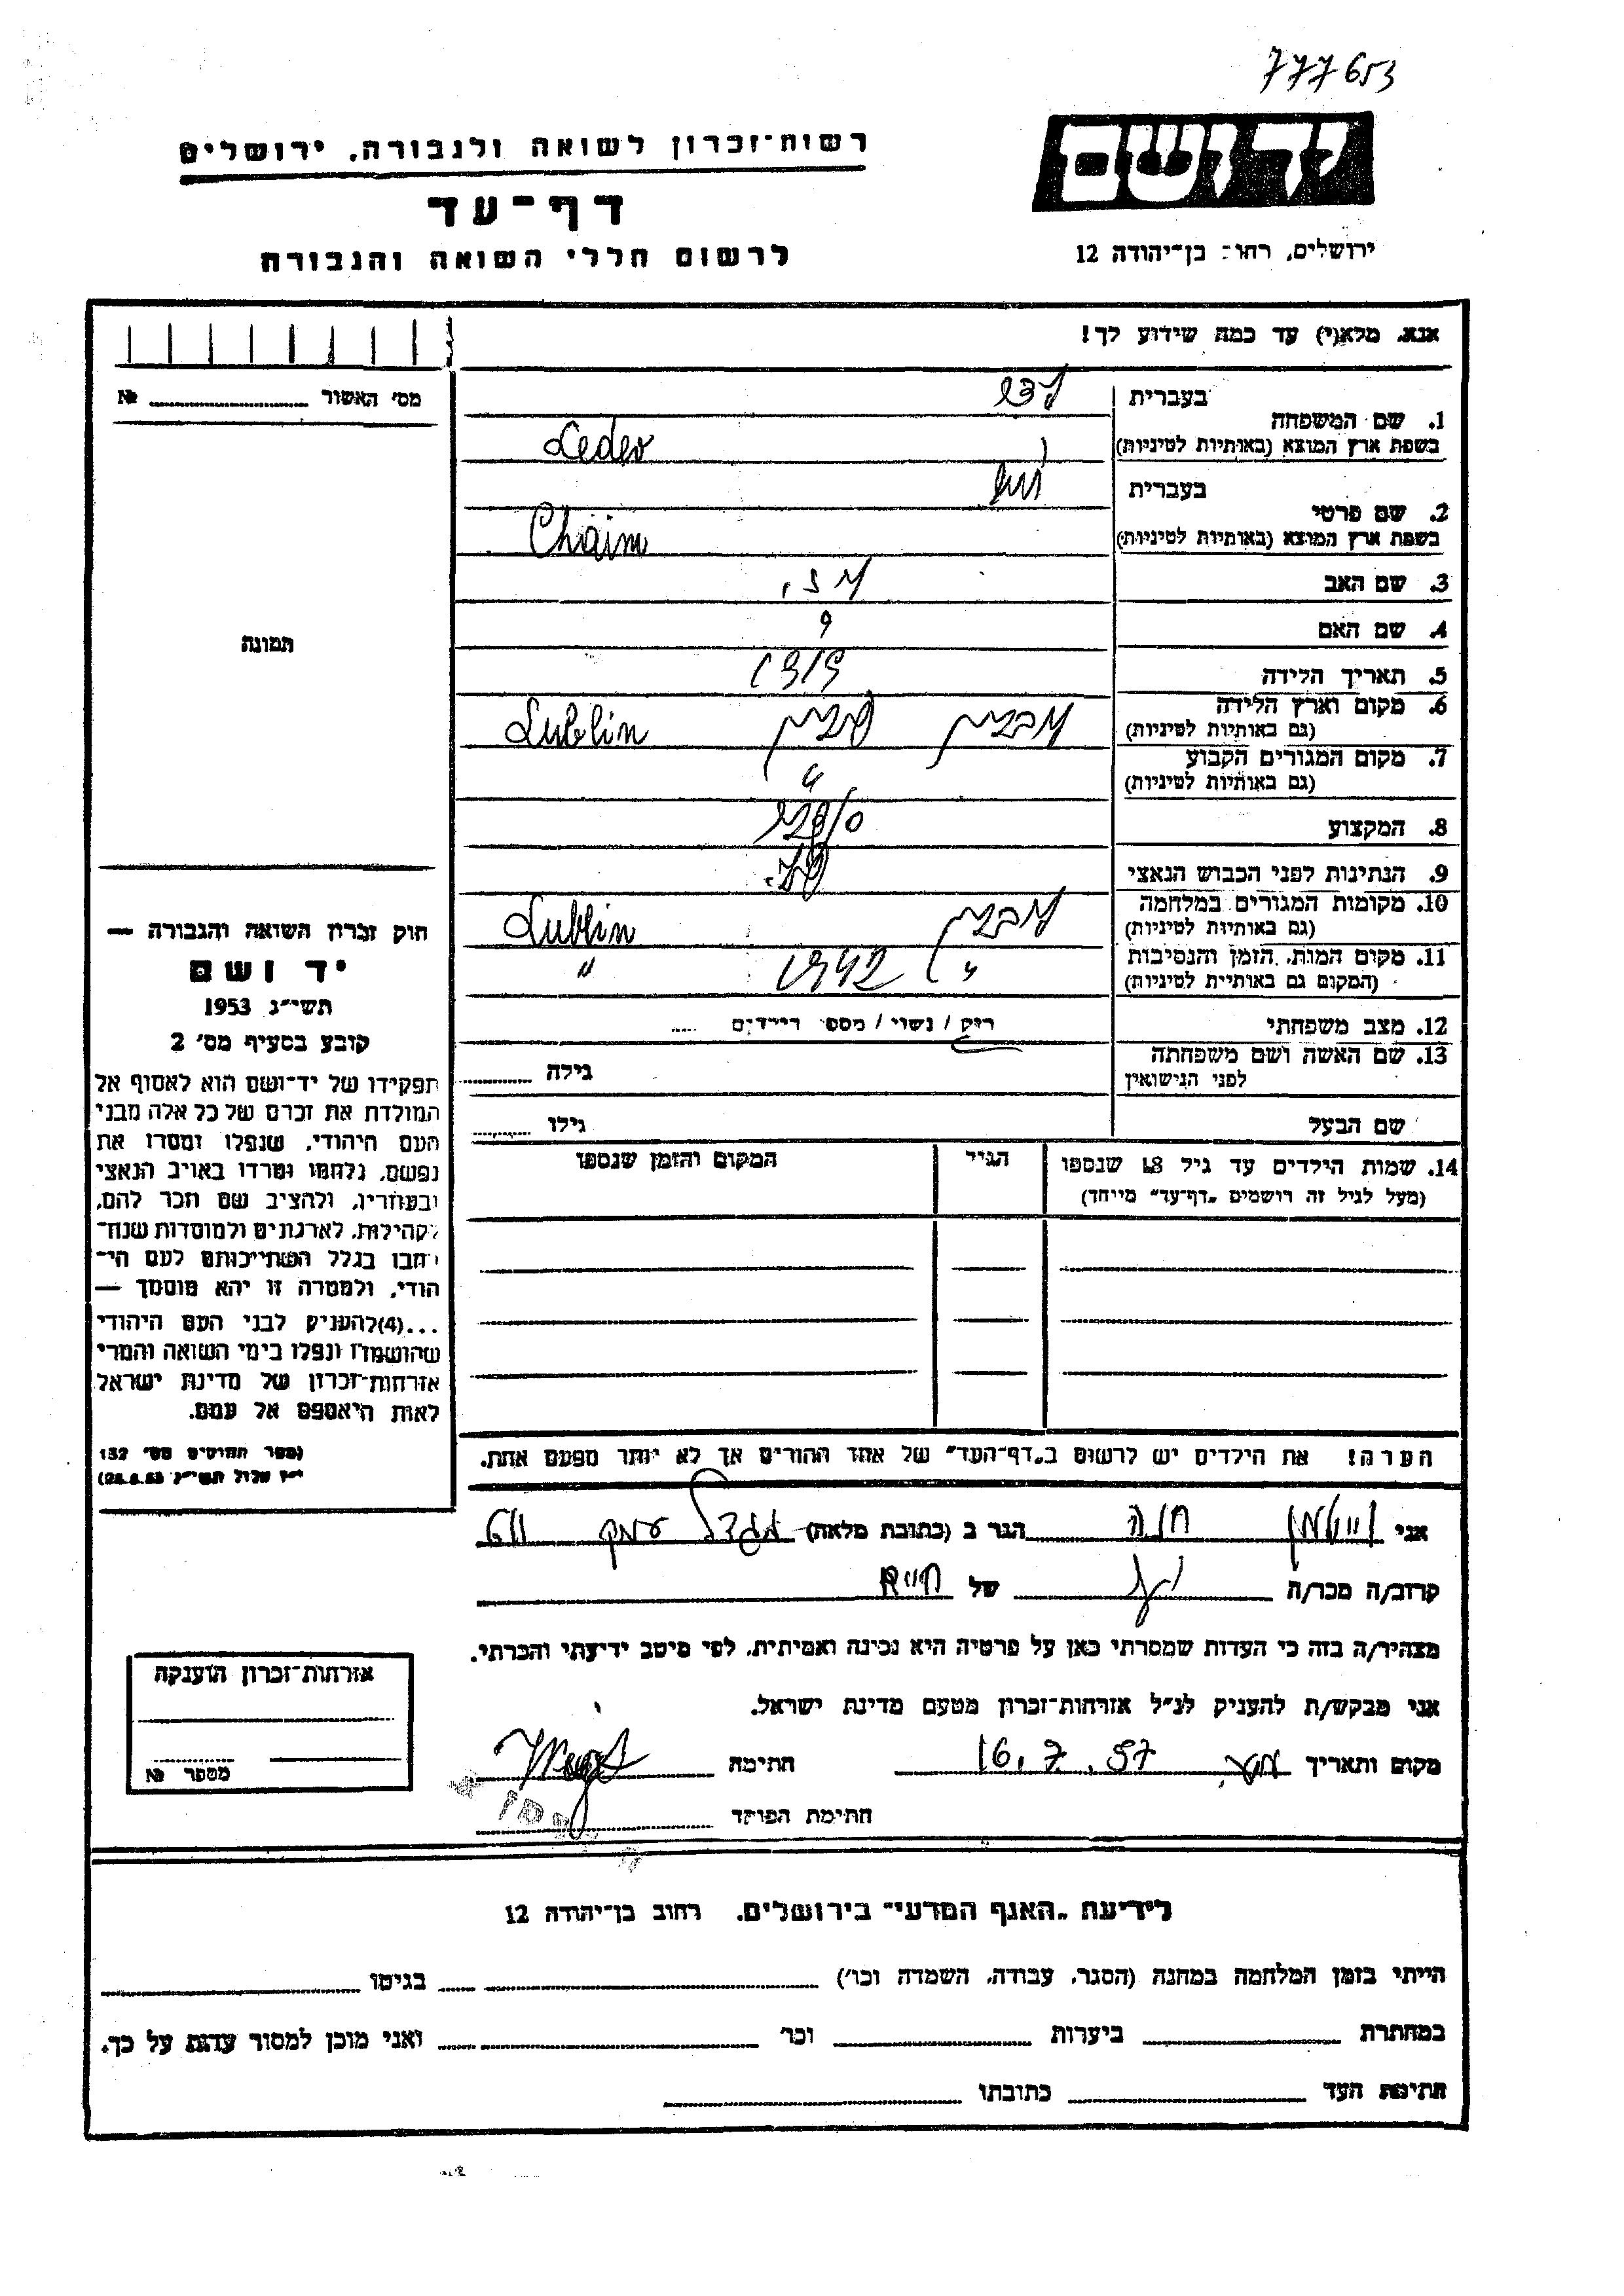 777653
יד ושם
ירושלים, רחוב בן־יהודה 12
רשות־זכרון לשואה ולגבורה, ירושלים
דף־עד
לרשום חללי השואה והגבורה
אנא, מלא(י) עד כמה שידוע לך!
בעברית לדר
1. שם המשפחה
בשפת ארץ המוצא (באותיות לטיניות) Leder
בעברית חיים
2. שם פרטי
בשפת ארץ המוצא (באותיות לטיניות) Chaim
3. שם האב
4. שם האם ?
5. תאריך הלידה 1919
6. מקום וארץ הלידה לובלין פולין Lublin
(גם באותיות לטיניות)
7. מקום המגורים הקבוע "
(גם באותיות לטיניות)
8. המקצוע
9. הנתינות לפני הכבוש הנאצי פול.
10. מקומות המגורים במלחמה לובלין Lublin
(גם באותיות לטיניות)
11. מקום המות, הזמן והנסיבות " 1942 "
(המקום גם באותיית לטיניות)
12. מצב משפחתי רוק / נשוי / מספר הילדים
13. שם האשה ושם משפחתה גילה
לפני הנישואין
שם הבעל גילו
14. שמות הילדים עד גיל 18 שנספו הגיל המקום והזמן שנספו
(מעל לגיל זה רושמים "דף־עד" מייחד)
הערה! את הילדים יש לרשום ב"דף־העד" של אחד ההורים אך לא יותר מפעם אחת.
מס' האשור №
תמונה
חוק זכרון השואה והגבורה —
יד ושם
תשי"ג 1953
קובע בסעיף מס' 2
תפקידו של יד־ושם הוא לאסוף אל
המולדת את זכרם של כל אלה מבני
העם היהודי, שנפלו ומסרו את
נפשם, נלחמו ומרדו באויב הנאצי
ובעוזריו, ולהציב שם וזכר להם,
לקהילות, לארגונים ולמוסדות שנח־
רבו בגלל השתייכותם לעם הי־
הודי, ולמטרה זו יהא מוסמך —
...(4)להעניק לבני העם היהודי
שהושמדו ונפלו בימי השואה והמרי
אזרחות־זכרון של מדינת ישראל
לאות היאספם אל עמם.
(ספר החוקים מס' 132
י"ז אלול תשי"ג 28.8.53)
אני חנה הגר ב (כתובת מלאה) מגדל עמק
קרוב/ה מכר/ה של חיים
מצהיר/ה בזה כי העדות שמסרתי כאן על פרטיה היא נכונה ואמיתית, לפי מיטב ידיעתי והכרתי.
אני מבקש/ת להעניק לנ"ל אזרחות־זכרון מטעם מדינת ישראל.
מקום ותאריך 16.7.57 חתימה
חתימת הפוקד
אזרחות־זכרון הוענקה
מספר №
לידיעת "האגף המדעי" בירושלים, רחוב בן־יהודה 12
הייתי בזמן המלחמה במחנה (הסגר, עבודה, השמדה וכו') בגיטו
במחתרת ביערות וכו' ואני מוכן למסור עדות על כך.
חתימת העד כתובתו